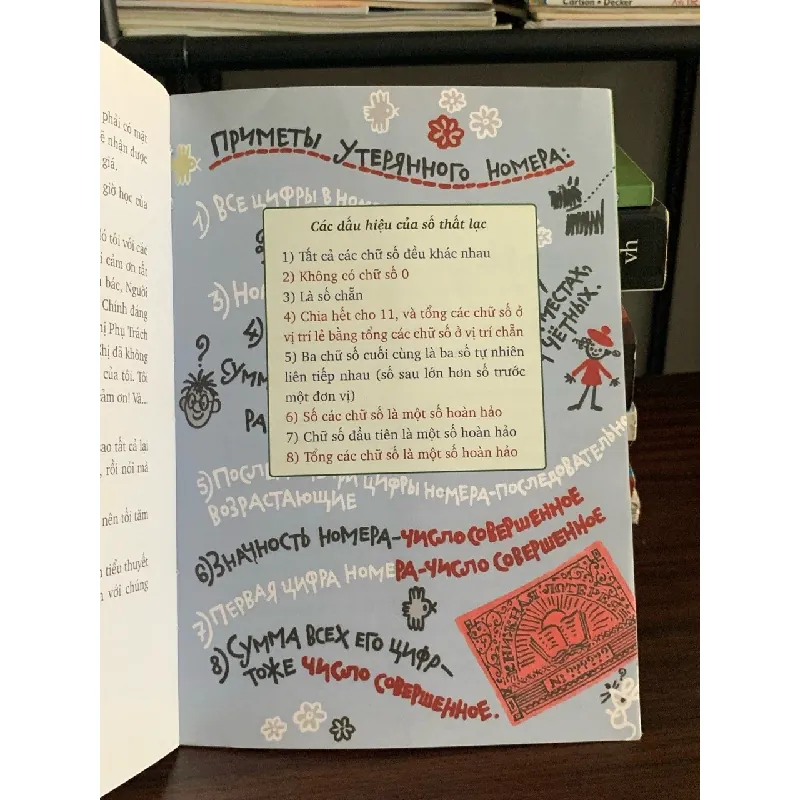 Carlson • Decker
phải có mặt
nhân được
giá.
giờ học của
tôi với các
cảm ơn tất
bác, Người
Chính đáng
Phụ Trách
đã không
của tôi. Tôi
ảm ơn! Vâ...
sao tất cả lại
rồi nói mà
nên tối tăm
tiểu thuyết
với chúng
ПРИМЕТЫ УТЕРЯННОГО НОМЕРА:
1) ВСЕ ЦИФРЫ В НОМЕ
Các dấu hiệu của số thất lạc
1) Tất cả các chữ số đều khác nhau
2) Không có chữ số 0
3) Là số chẵn
4) Chia hết cho 11, và tổng các chữ số ở
vị trí lẻ bằng tổng các chữ số ở vị trí chẵn
5) Ba chữ số cuối cùng là ba số tự nhiên
liên tiếp nhau (số sau lớn hơn số trước
một đơn vị)
6) Số các chữ số là một số hoàn hảo
7) Chữ số đầu tiên là một số hoàn hảo
8) Tổng các chữ số là một số hoàn hảo
3) НО
4)
СУММ
РА
МЕСТАХ,
ЧЁТНЫХ.
5) ПОСЛЕ РИ ЦИФРЫ НОМЕРА-ПОСЛЕДОВАТЕЛЬНО
ВОЗРАСТАЮЩИЕ
6) ЗНАЧНОСТЬ НОМЕРА-ЧИСЛО СОВЕРШЕННОЕ
7) ПЕРВАЯ ЦИФРА НОМЕРА-ЧИСЛО СОВЕРШЕННОЕ
8) СУММА ВСЕХ ЕГО ЦИФР-
ТОЖЕ ЧИСЛО СОВЕРШЕННОЕ.
КНИЖНАЯ ЛОТЕРЕ
vh